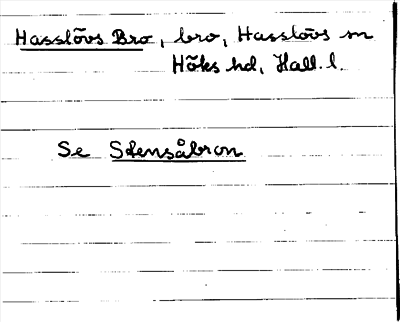 Hasslövs Bro, bro, Hasslövs sn
Höks hd, Hall. l.
Se Stensåbron